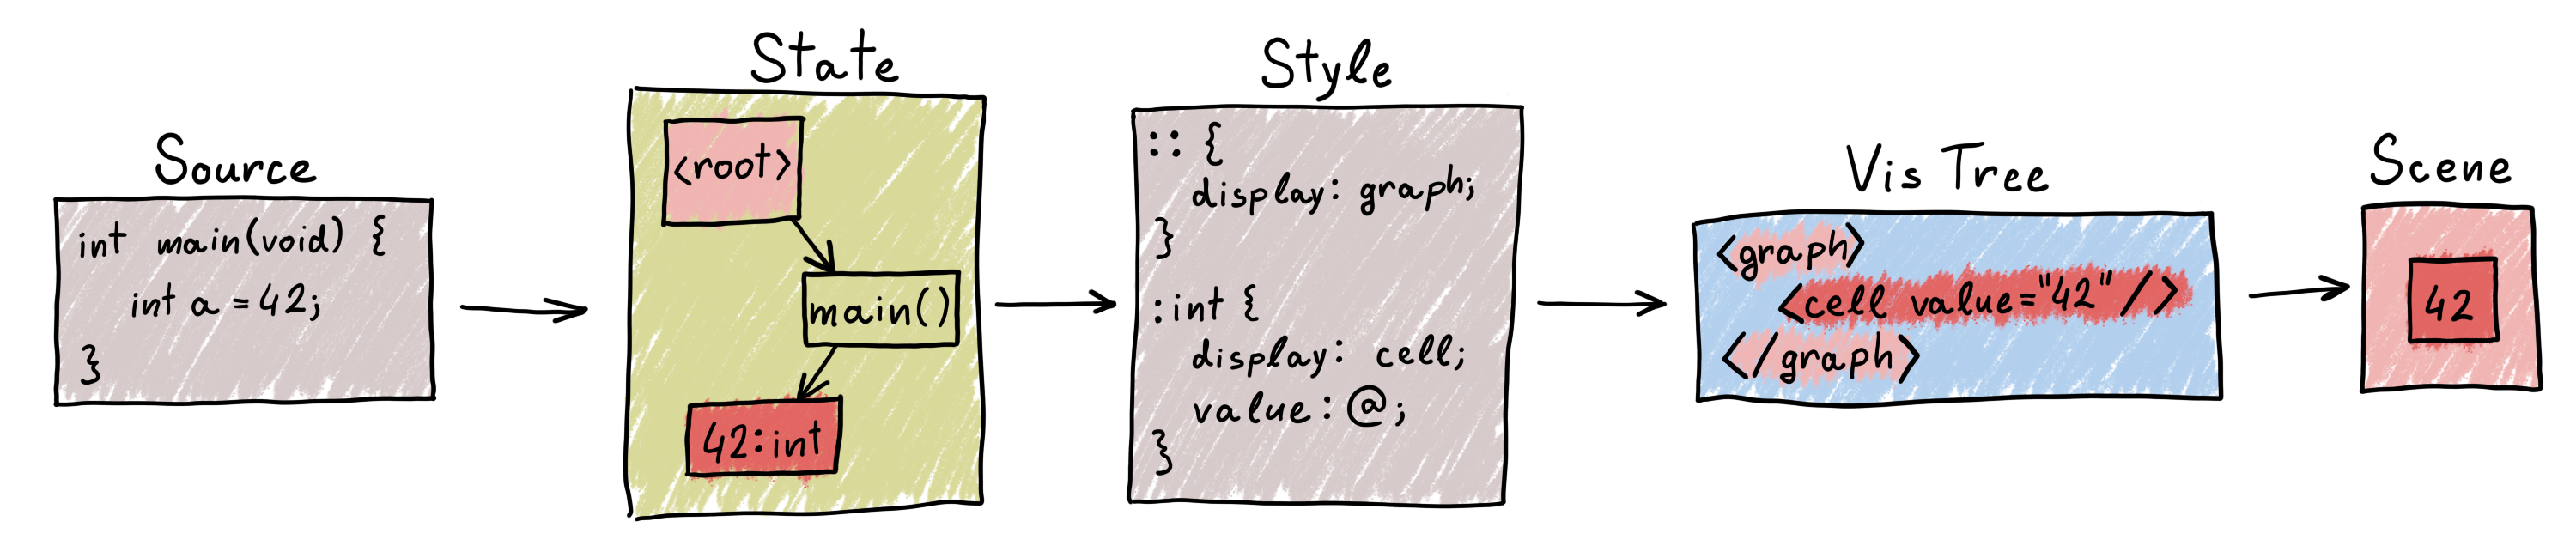 Source
int main(void) {
int a = 42;
}
State
<root>
main()
42:int
Style
:: {
display: graph;
}
:int {
display: cell;
value: @;
}
Vis Tree
<graph>
<cell value="42"/>
</graph>
Scene
42